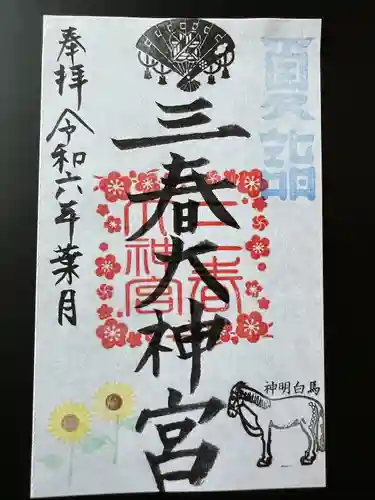 夏詣
三春大神宮
奉拝 令和六年葉月
三春大神宮
神明白馬